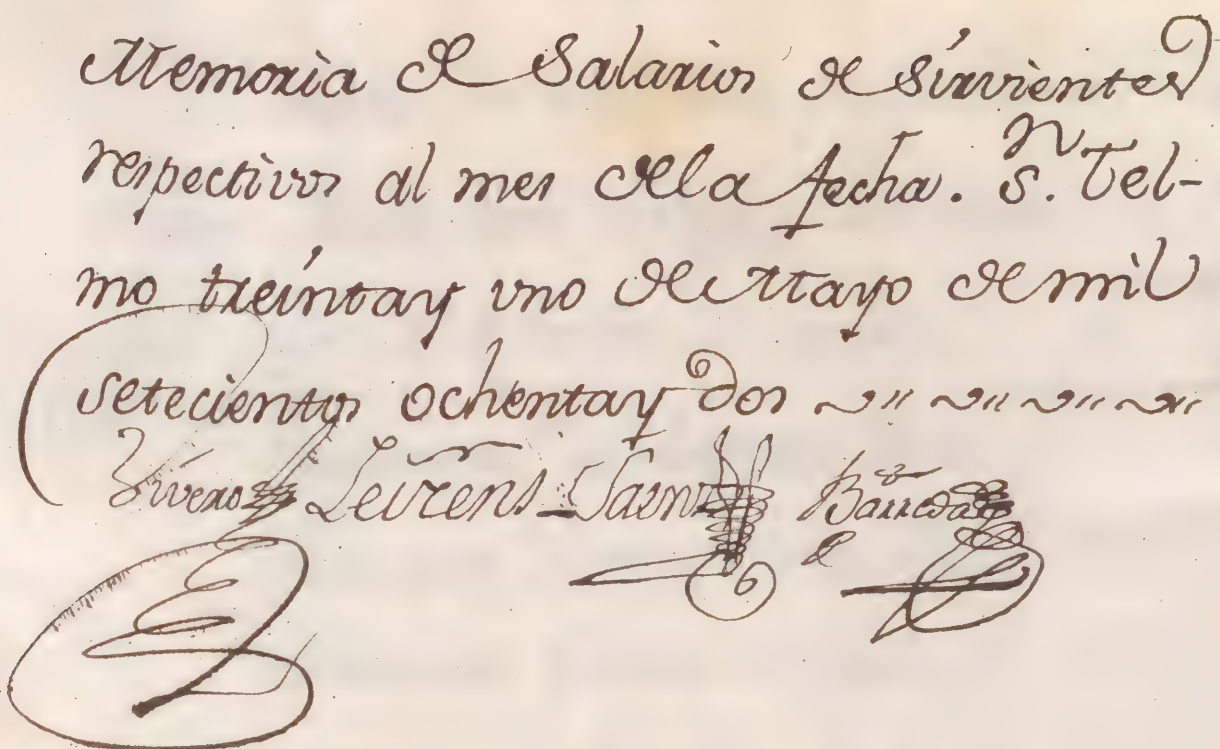 Memoria de Salarios de sirvientes
respectivos al mes dela fecha. Sn. Tel-
mo treinta y uno de Mayo de mil
setecientos ochenta y dos
Vivero Leirens Barreda